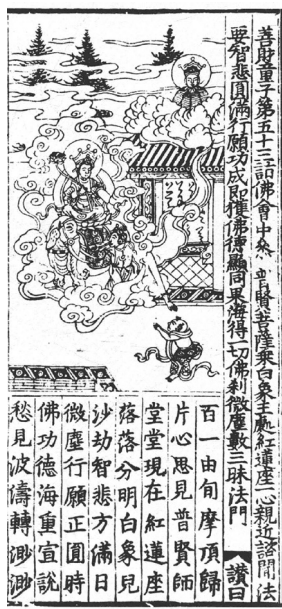 善財童子第五十三詣佛會中叅普賢菩薩乘白象王處紅蓮座一心親近諮問法
要智悲圓滿行願功成即獲佛傳顯同果海得一切佛剎微塵數三昧法門 讚曰
百一由旬摩頂歸
片心思見普賢師
堂堂現在紅蓮座
落落分明白象兒
沙劫智悲方滿日
微塵行願正圓時
佛功德海重宣說
愁見波濤轉渺渺